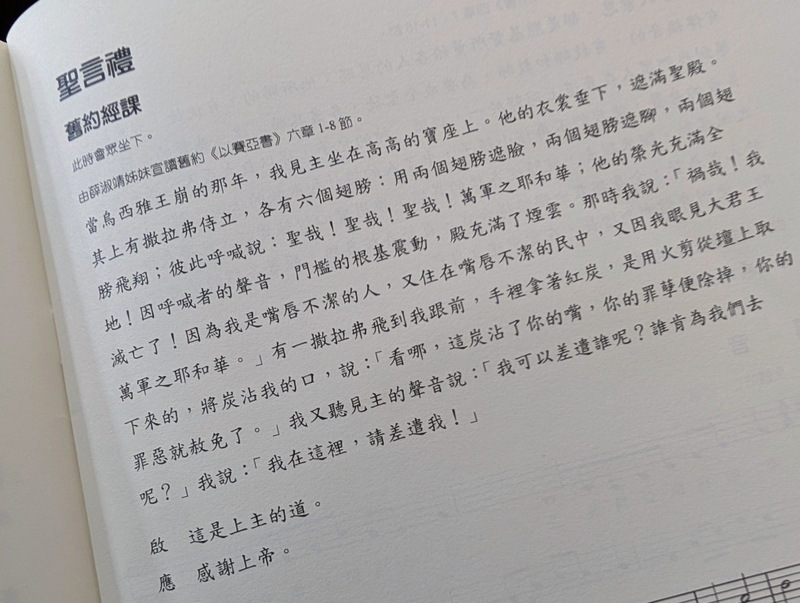 聖言禮
舊約經課
此時會眾坐下。
由薛淑靖姊妹宣讀舊約《以賽亞書》六章 1-8 節。
當烏西雅王崩的那年，我見主坐在高高的寶座上。他的衣裳垂下，遮滿聖殿。
其上有撒拉弗侍立，各有六個翅膀：用兩個翅膀遮臉，兩個翅膀遮腳，兩個翅
膀飛翔；彼此呼喊說：聖哉！聖哉！聖哉！萬軍之耶和華；他的榮光充滿全
地！因呼喊者的聲音，門檻的根基震動，殿充滿了煙雲。那時我說：「禍哉！我
滅亡了！因為我是嘴唇不潔的人，又住在嘴唇不潔的民中，又因我眼見大君王
萬軍之耶和華。」有一撒拉弗飛到我跟前，手裡拿著紅炭，是用火剪從壇上取
下來的，將炭沾我的口，說：「看哪，這炭沾了你的嘴，你的罪孽便除掉，你的
罪惡就赦免了。」我又聽見主的聲音說：「我可以差遣誰呢？誰肯為我們去
呢？」我說：「我在這裡，請差遣我！」
啟　這是上主的道。
應　感謝上帝。